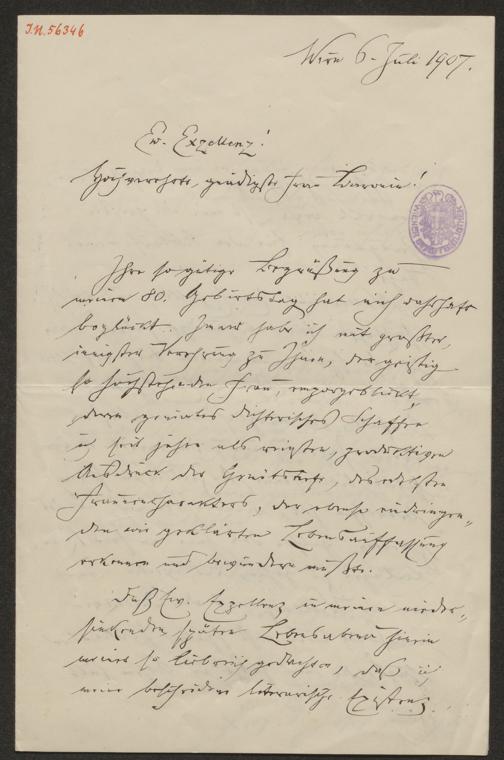 J.N. 56346
Wien 6. Juli 1907.
Ew. Exzellenz!
Hochverehrte, gnädigste Frau Baronin!
Ihre so gütige Begrüßung zu
meinem 80. Geburtstag hat mich wahrhaft
beglückt. Immer habe ich mit größter,
innigster Verehrung zu Ihnen, der geistig
so hochstehenden Frau, emporgeblickt,
deren geniales dichterisches Schaffen
ich seit jeher als reinsten, produktiven
Ausdruck der Gemütstiefe, des edelsten
Frauencharakters, der ebenso eindringen-
den wie geklärten Lebensauffassung
erkennen und bewundern mußte.
Daß Ew. Exzellenz in meinen nieder-
sinkenden späten Lebensabend hinein
meiner so liebreich gedachten, daß ich
meine bescheidene literarische Existenz